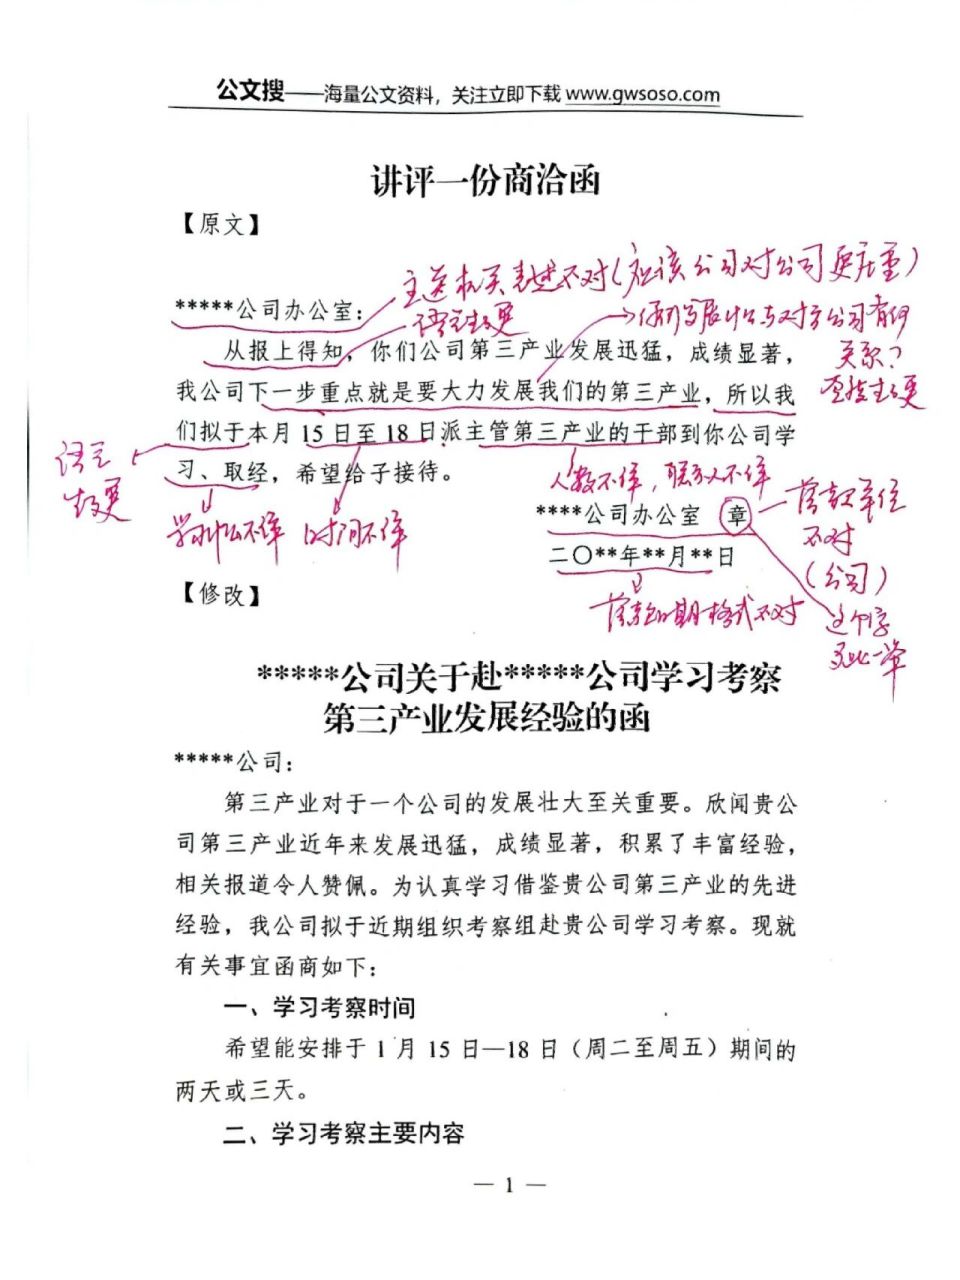 公文搜——海量公文资料，关注立即下载 www.gwsoso.com
讲评一份商洽函
【原文】
主送机关表述不对(应该公司对公司更庄重)
*****公司办公室：
语言生硬
从报上得知，你们公司第三产业发展迅猛，成绩显著，
我公司下一步重点就是要大力发展我们的第三产业，所以我
们拟于本月 15 日至 18 日派主管第三产业的干部到你公司学
习、取经，希望给子接待。
关系？
语言
生硬
人数不详，联系人不详
学习什么不详
时间不详
****公司办公室 章
落款单位
不对
(公司)
二〇**年**月**日
落款日期格式不对
这个字
多此一举
【修改】
*****公司关于赴*****公司学习考察
第三产业发展经验的函
*****公司：
第三产业对于一个公司的发展壮大至关重要。欣闻贵公
司第三产业近年来发展迅猛，成绩显著，积累了丰富经验，
相关报道令人赞佩。为认真学习借鉴贵公司第三产业的先进
经验，我公司拟于近期组织考察组赴贵公司学习考察。现就
有关事宜函商如下：
一、学习考察时间
希望能安排于 1 月 15 日—18 日（周二至周五）期间的
两天或三天。
二、学习考察主要内容
— 1 —